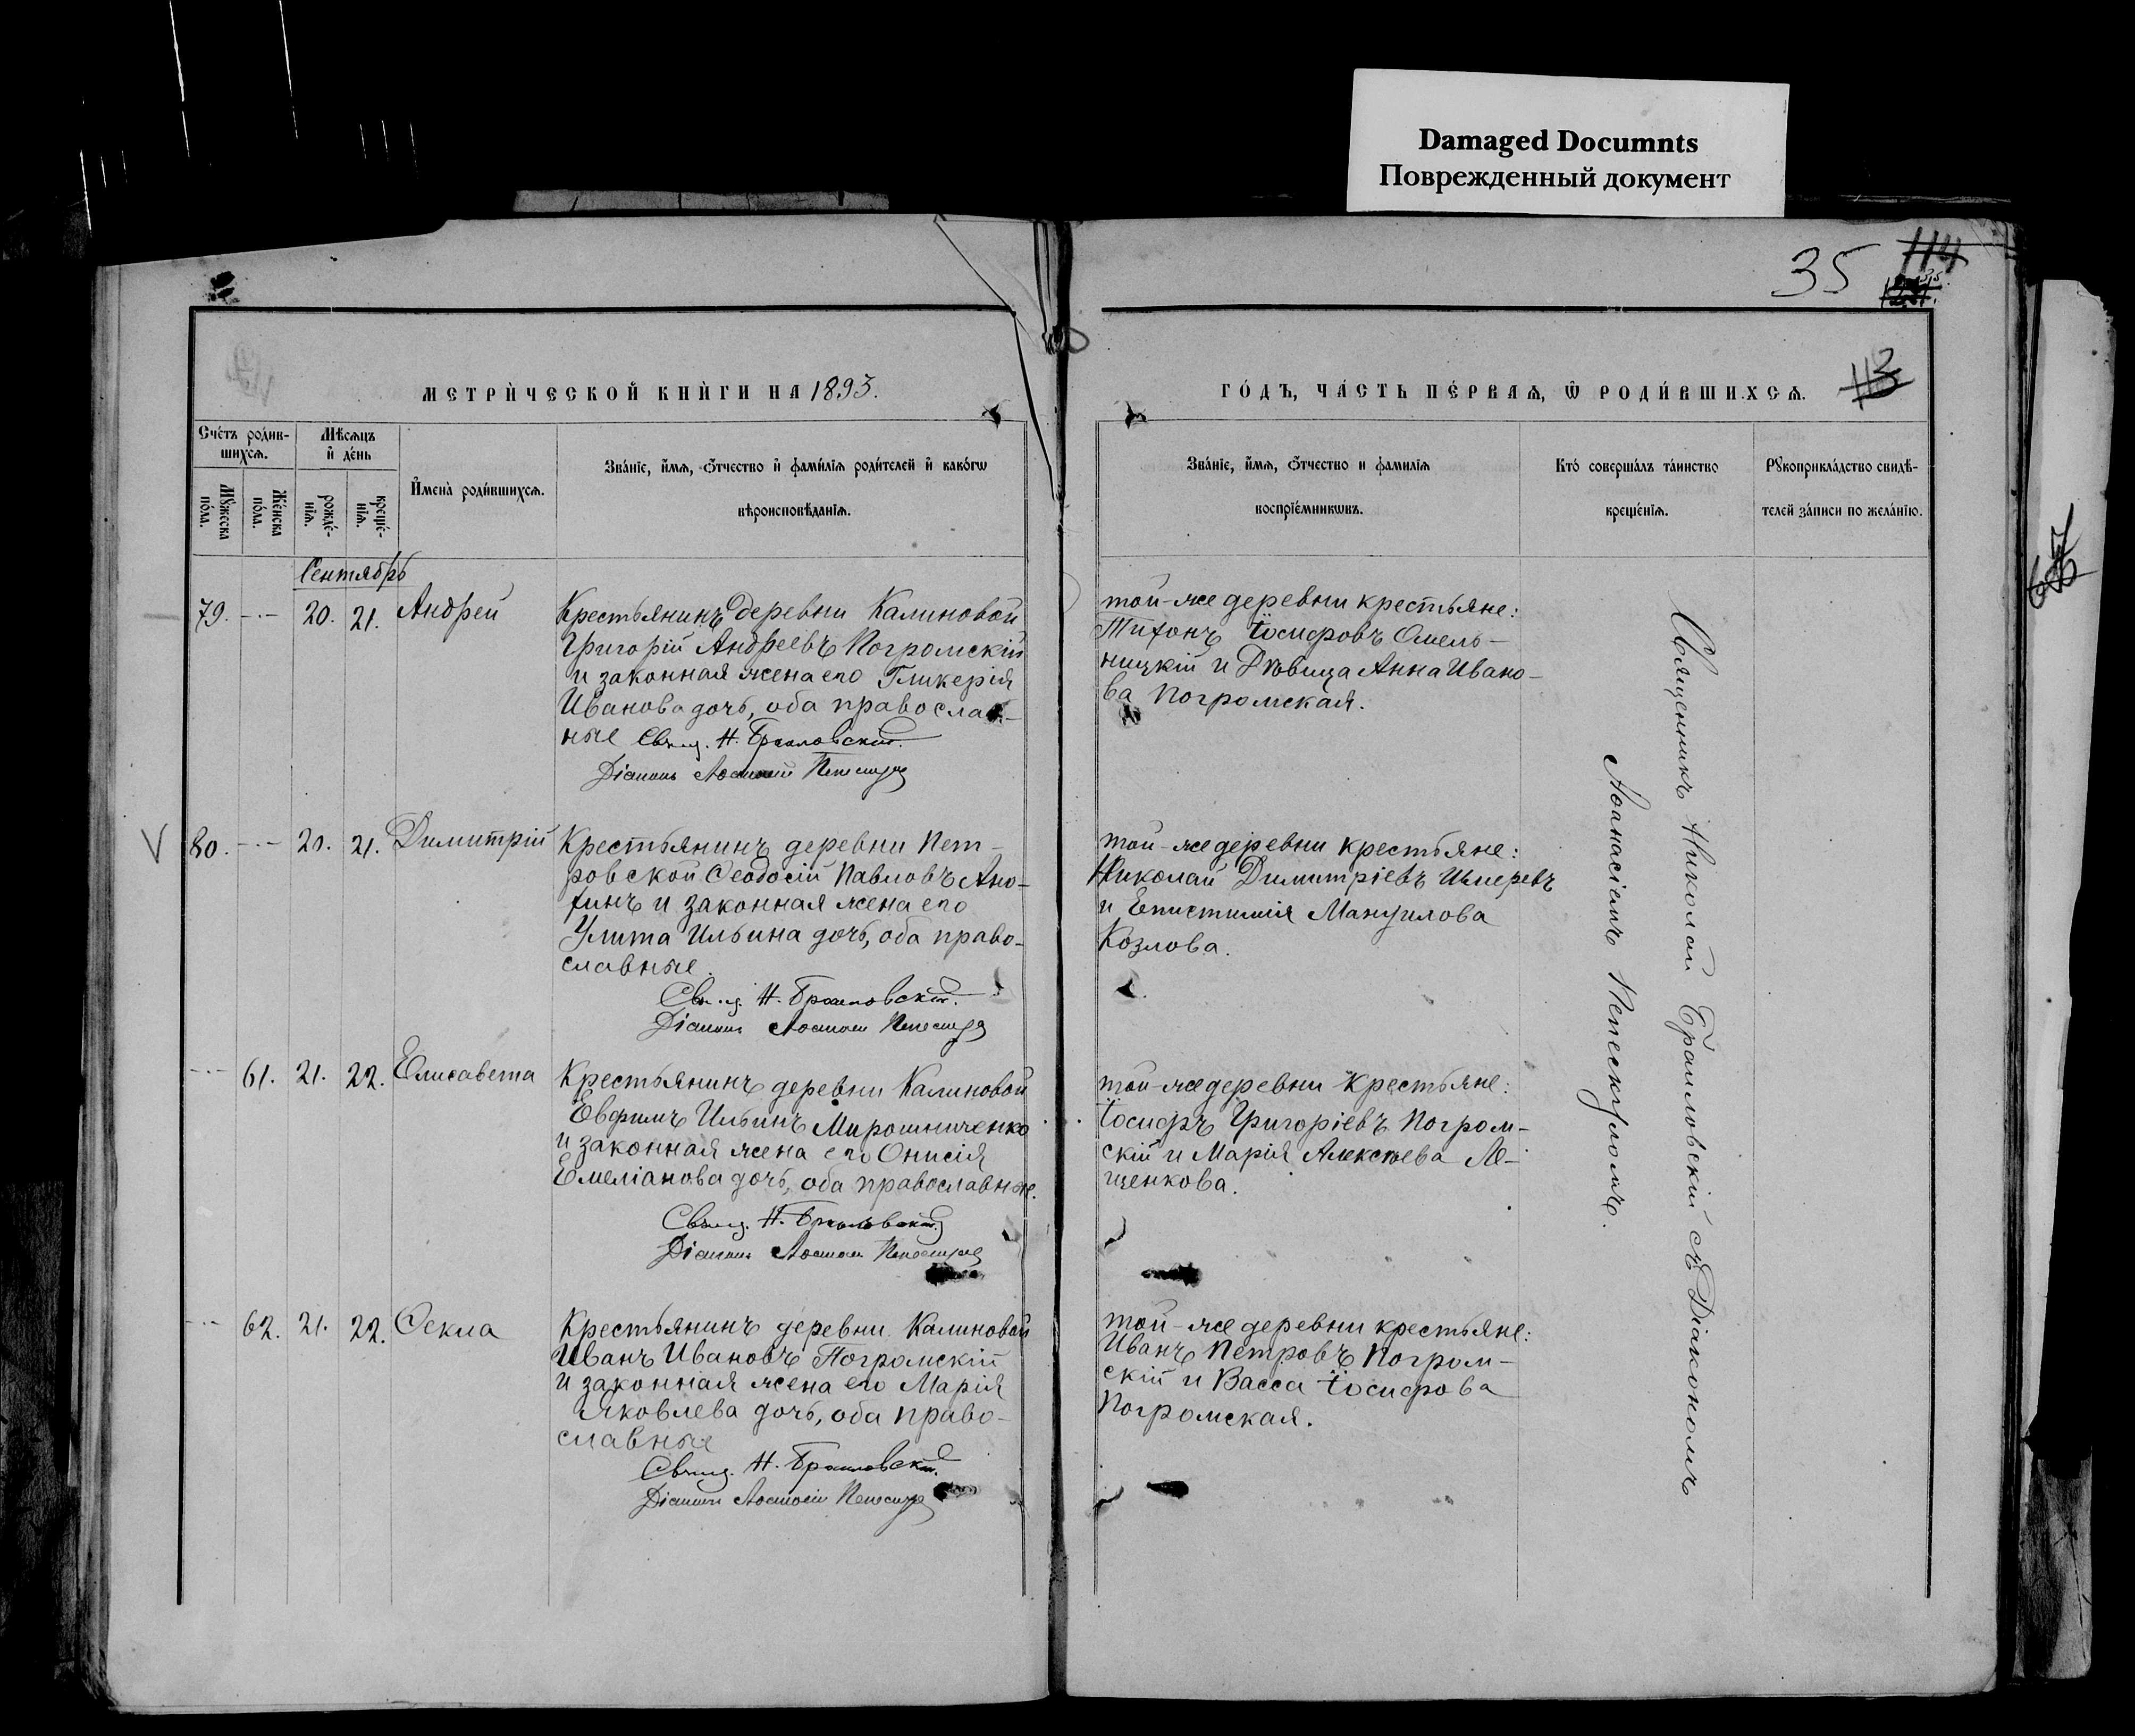 Damaged Documnts
Поврежденный документ
35
114
113
МЕТРИ́ЧЕСКОЙ КНИ́ГИ НА 1893.
ГО́ДЪ, ЧА́СТЬ ПЕ́РВАѦ, Ѽ РОДИ́ВШИХСѦ.
Сче́тъ роди́в-
шихсѧ.
Мѣ́сѧцъ
и҆ де́нь
Мꙋ́жеска
по́ла.
Же́нска
по́ла.
рожде́-
нїѧ.
креще́-
нїѧ.
И҆мена̀ роди́вшихсѧ.
Зва́нїе, и҆́мѧ, ѻ҆́тчество и҆ фами́лїѧ роди́телей и҆ како́гѡ
вѣроисповѣ́данїѧ.
Зва́нїе, и҆́мѧ, ѻ҆́тчество и фами́лїѧ
воспрїе́мникѡвъ.
Кто́ соверша́лъ та́инство
креще́нїѧ.
Рꙋкоприкла́дство свидѣ́-
телей за́писи по жела́нїю.
Сентябрь
79. -·- 20. 21. Андрей
Крестьянинъ деревни Калиновой
Григорій Андреевъ Погромскій
и законная жена его Гликерія
Иванова дочь, оба православ-
ные Свящ. Н. Браиловскій.
Діаконъ
той-же деревни крестьяне:
Тихонъ Іосифовъ Омель-
ницкій и Дѣвица Анна Ивано-
ва Погромская.
80. -·- 20. 21. Димитрій
Крестьянинъ деревни Пет-
ровской Ѳеодосій Павловъ Ано-
хинъ и законная жена его
Улита Ильина дочь, оба право-
славные.
Свящ. Н. Браиловскій.
Діаконъ
той-же деревни крестьяне:
Николай Димитріевъ
и Епистимія Мануилова
Козлова.
-·- 61. 21. 22. Елисавета
Крестьянинъ деревни Калиновой
Евфимъ Ильинъ Мирошниченко
и законная жена его Онисія
Емеліанова дочь, оба православные.
Свящ. Н. Браиловскій
Діаконъ
той-же деревни крестьяне:
Іосифъ Григоріевъ Погром-
скій и Марія Алексѣева Ле-
щенкова.
-·- 62. 21. 22. Ѳекла
Крестьянинъ деревни Калиновой
Иванъ Ивановъ Погромскій
и законная жена его Марія
Яковлева дочь, оба право-
славные
Свящ. Н. Браиловскій.
Діаконъ
той-же деревни крестьяне:
Иванъ Петровъ Погром-
скій и Васса Іосифова
Погромская.
Священникъ Николай Браиловскій съ Діакономъ
Аѳанасіемъ